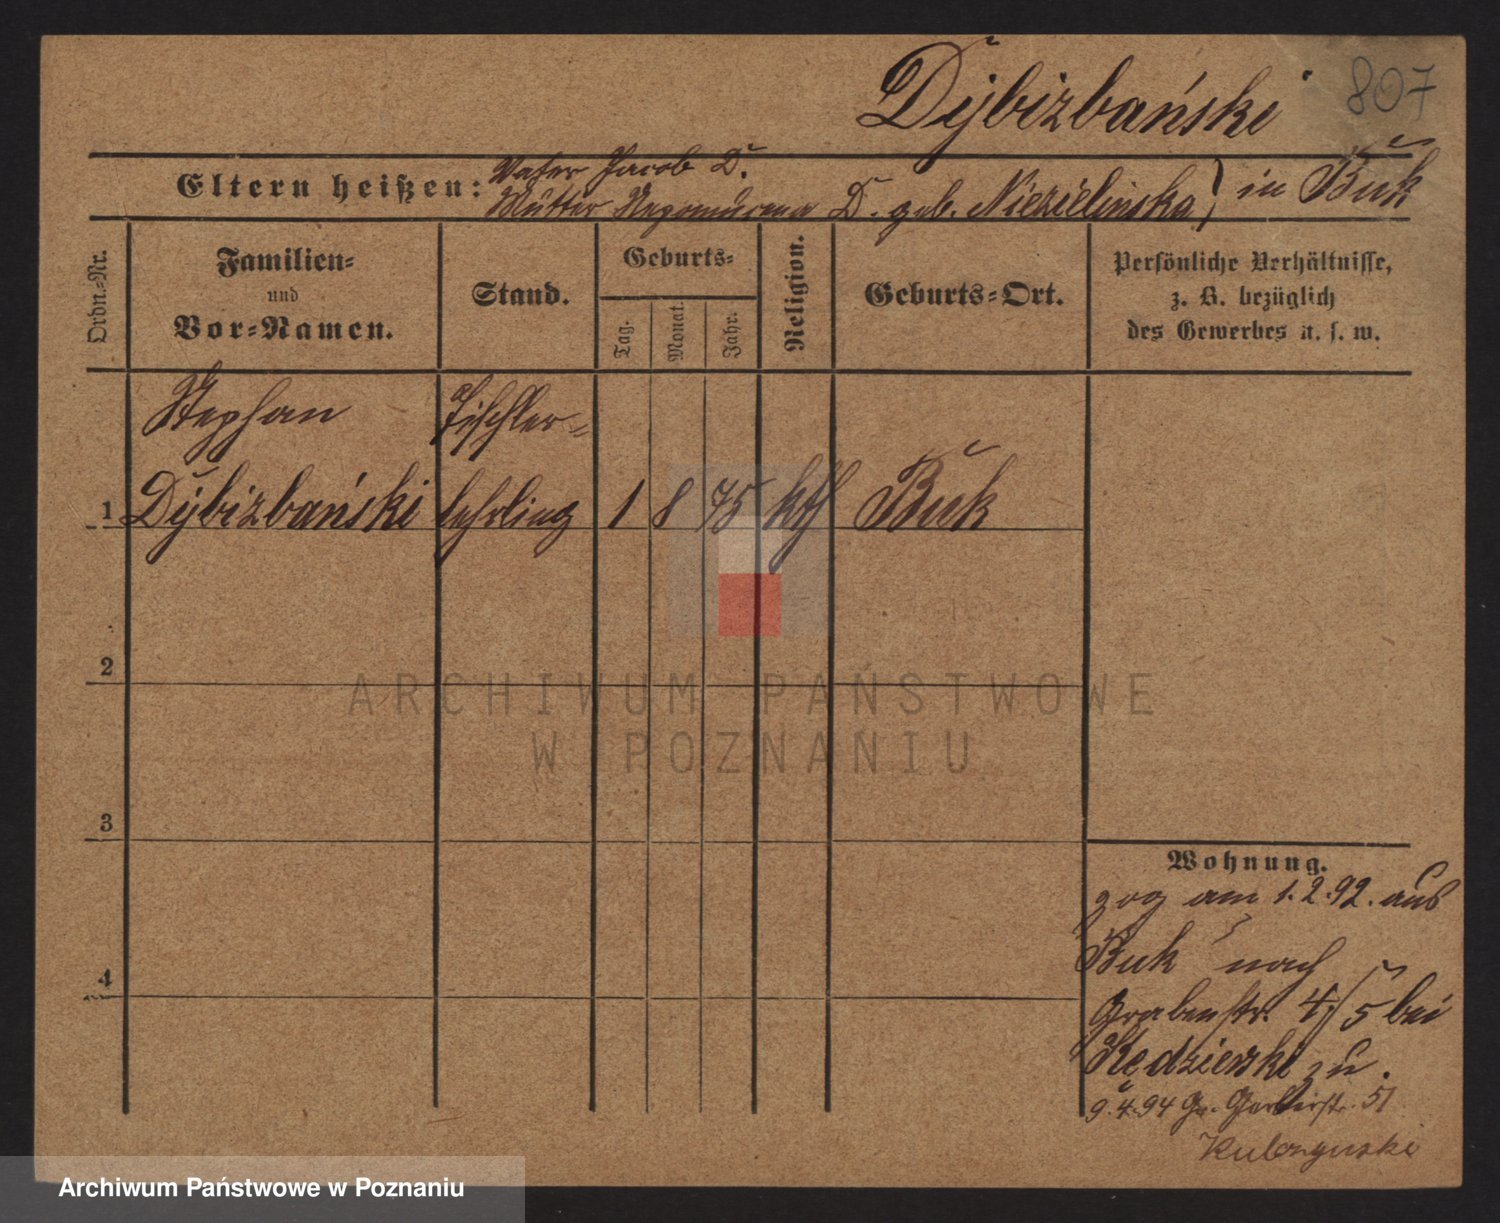 Dÿbizbański
807
Eltern heißen:
Vater Jacob D.
Mutter Nepomucena D. geb. Niezielinska
in Buk
Ordn.-Nr.
Familien-
und
Vor-Namen.
Stand.
Geburts-
Tag.
Monat.
Jahr.
Religion.
Geburts-Ort.
Persönliche Verhältnisse,
z. B. bezüglich
des Gewerbes u. s. w.
Stephan Tischler-
1 Dÿbizbański lehrling 1 8 75 kth Buk
2
3
4
Wohnung.
zog am 1.2.92. aus
Buk nach
Grabenstr. 4/5 bei
Kędzierski zu.
9.4.94 Gr. Gerberstr. 51
ARCHIWUM PAŃSTWOWE
W POZNANIU
Archiwum Państwowe w Poznaniu